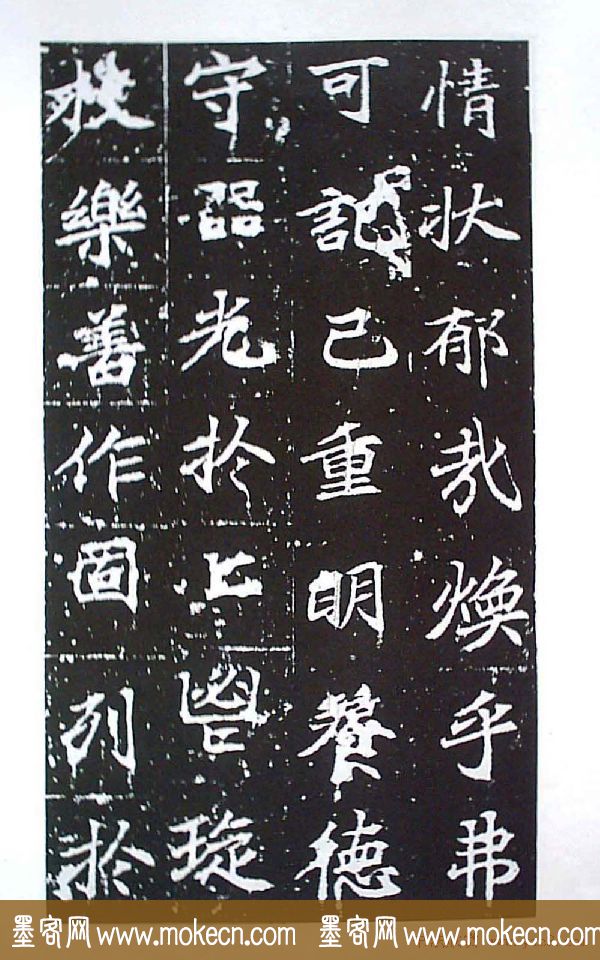 情状郁哉焕乎弗
可記已重明養徳
守器光扵上璇
枝樂善作固列扵
墨客网 www.mokecn.com 墨客网 www.mokecn.com